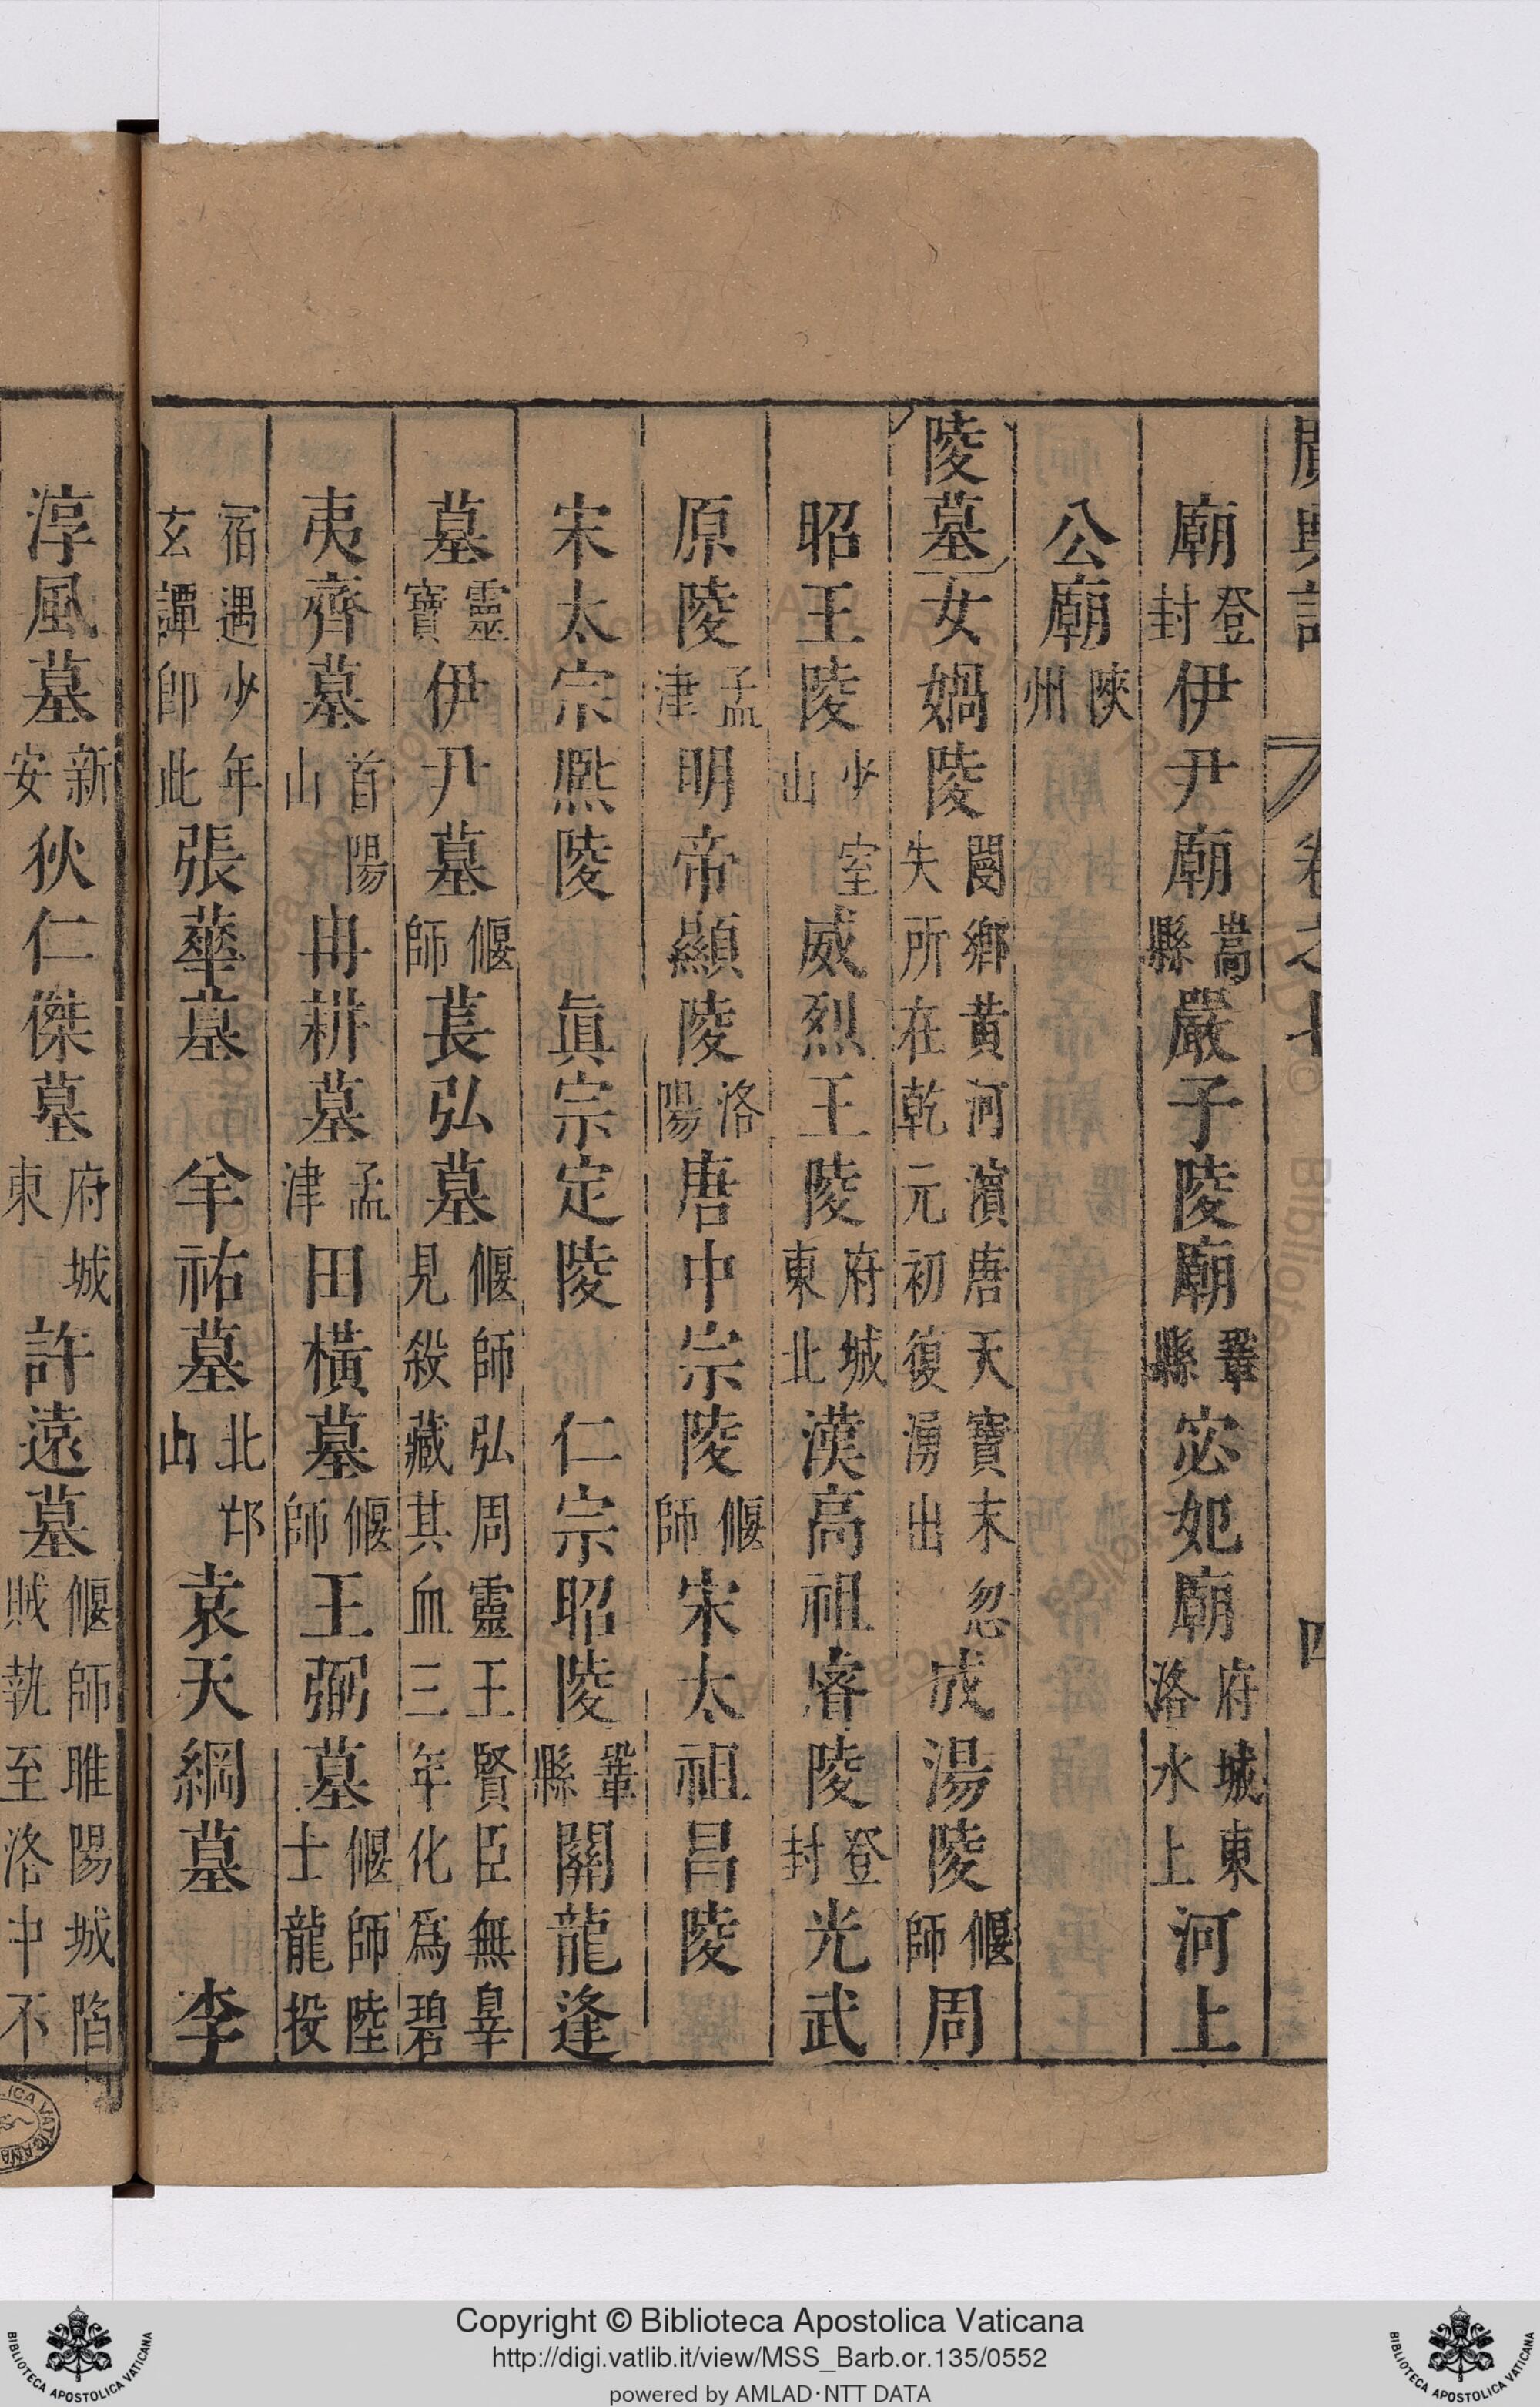 卷之七 四
廟登封伊尹廟嵩縣嚴子陵廟鞏縣宓妃廟府城東洛水上河上
公廟陝州
陵墓女媧陵閿鄉黄河濵唐天寶末忽失所在乾元初復湧出成湯陵偃師周
昭王陵少室山威烈王陵府城東北漢高祖睿陵登封光武
原陵孟津明帝顯陵洛陽唐中宗陵偃師宋太祖昌陵
宋太宗熈陵 眞宗定陵 仁宗昭陵鞏縣關龍逢
墓靈寶伊尹墓偃師萇弘墓偃師弘周靈王賢臣無辠見殺藏其血三年化爲碧
夷齊墓首陽山冉耕墓孟津田橫墓偃師王弼墓偃師陸士龍投
宿遇少年玄譚卽此張華墓 羊祜墓北邙山袁天綱墓 李
淳風墓新安狄仁傑墓府城東許遠墓偃師睢陽城陷賊執至洛中不
Copyright © Biblioteca Apostolica Vaticana
http://digi.vatlib.it/view/MSS_Barb.or.135/0552
powered by AMLAD·NTT DATA
BIBLIOTECA APOSTOLICA VATICANA
BIBLIOTECA APOSTOLICA VATICANA